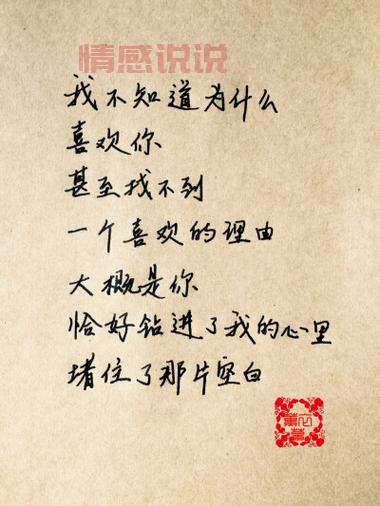 情感说说
我不知道为什么
喜欢你
甚至找不到
一个喜欢的理由
大概是你
恰好钻进了我的心里
堵住了那片空白